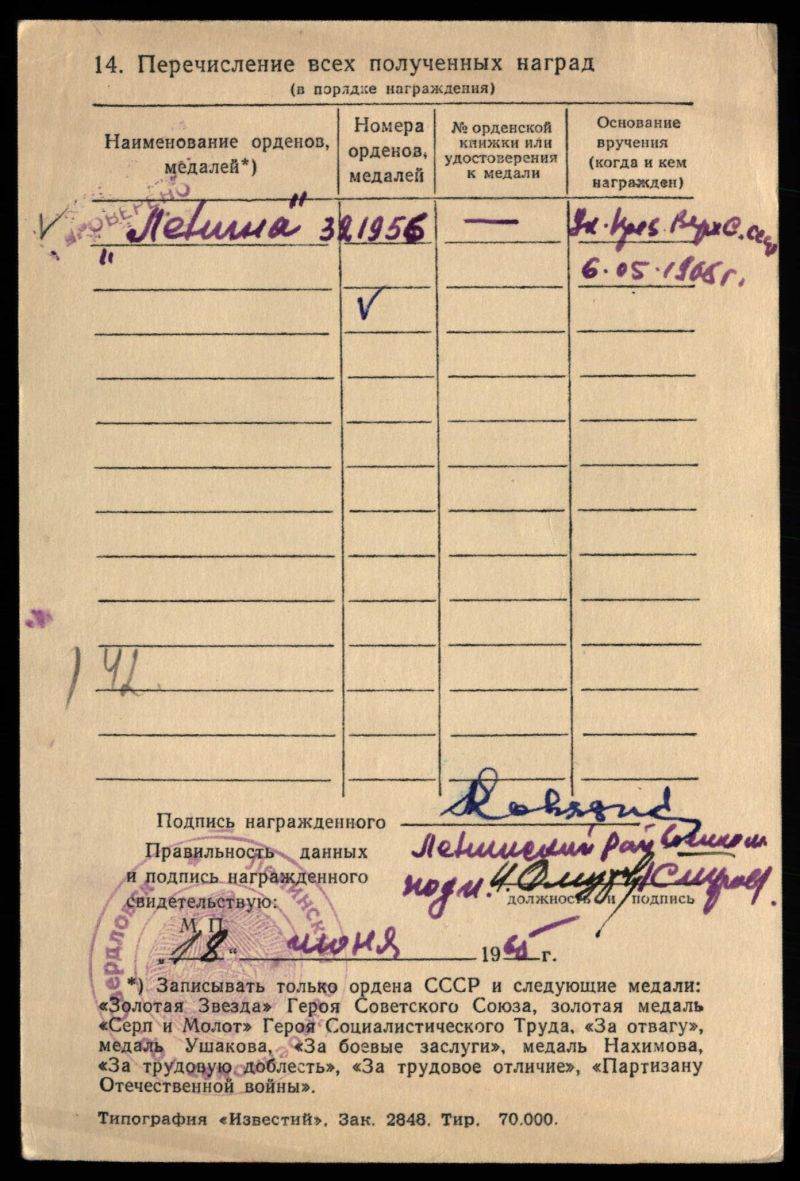 14. Перечисление всех полученных наград
(в порядке награждения)
Наименование орденов, медалей*)
Номера орденов, медалей
№ орденской книжки или удостоверения к медали
Основание вручения (когда и кем награжден)
ПРОВЕРЕНО
"Ленина" 321956 —
6.05.1965г.
142
Подпись награжденного
Правильность данных
Ленинский рай
и подпись награжденного
должность и подпись
свидетельствую:
М. П.
„18" июня 1965 г.
*) Записывать только ордена СССР и следующие медали:
«Золотая Звезда» Героя Советского Союза, золотая медаль
«Серп и Молот» Героя Социалистического Труда, «За отвагу»,
медаль Ушакова, «За боевые заслуги», медаль Нахимова,
«За трудовую доблесть», «За трудовое отличие», «Партизану
Отечественной войны».
Типография «Известий». Зак. 2848. Тир. 70.000.